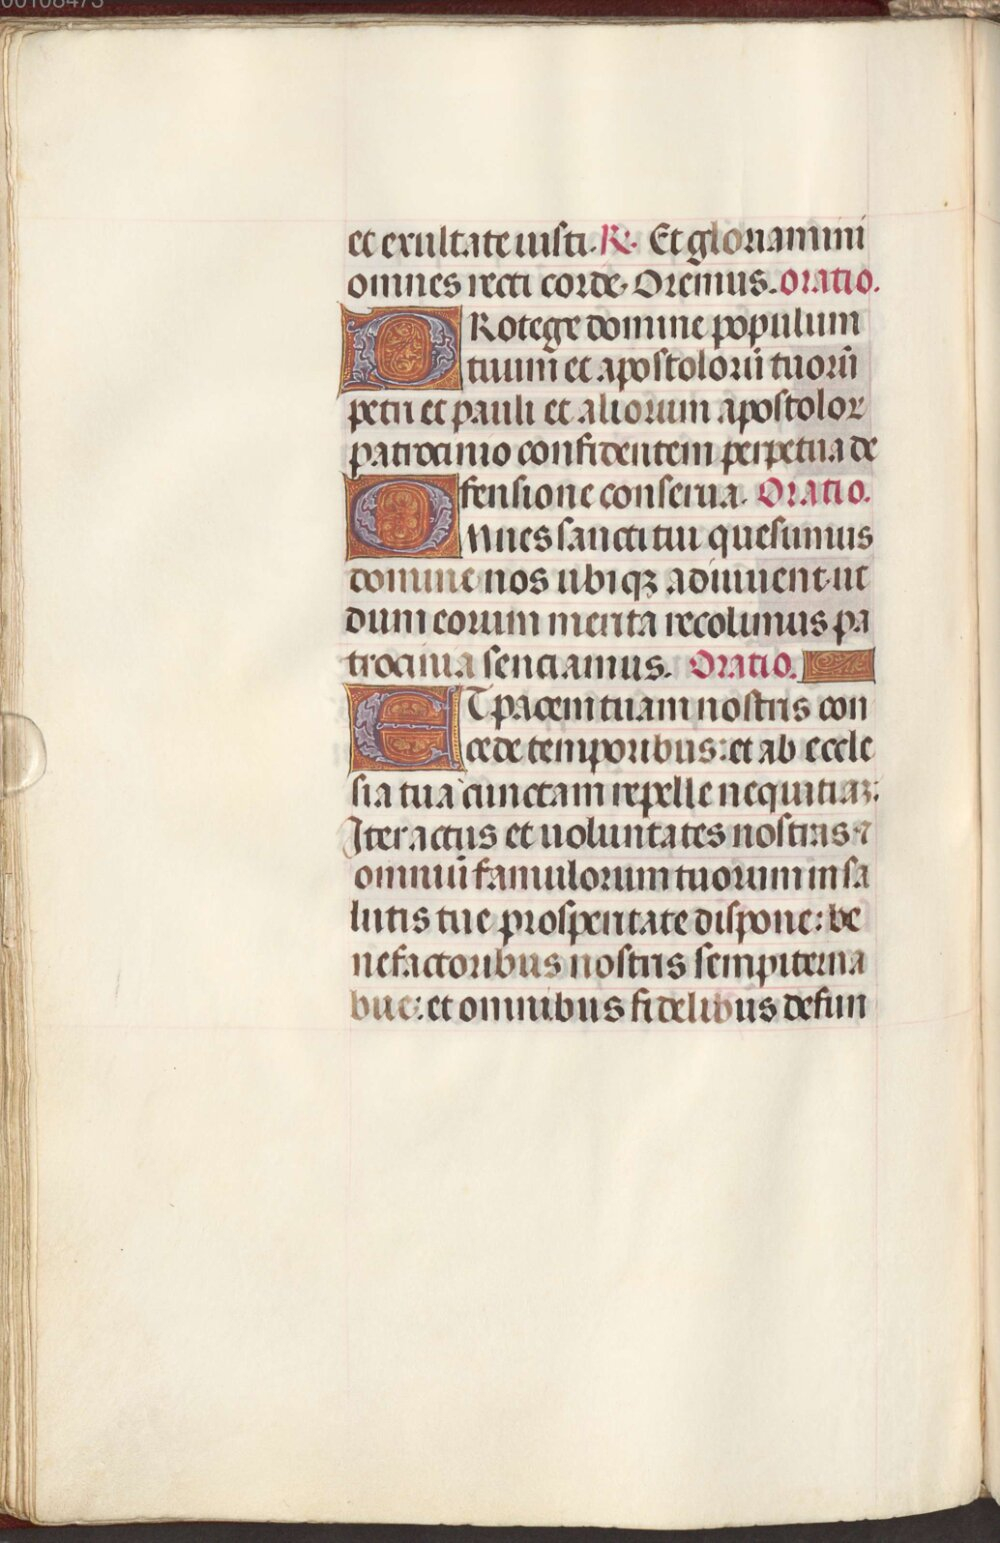 00108473
et exultate iusti. R. Et gloriamini
omnes recti corde. Oremus. Oratio.
PRotege domine populum
tuum et apostolorū tuorū
petri et pauli et aliorum apostolor
patrocinio confidentem perpetua de
fensione conserua. Oratio.
OMnes sancti tui quesumus
domine nos ubiqꝫ adiuuent ut
dum eorum merita recolimus pa
trocinia senciamus. Oratio.
ET pacem tuam nostris con
cede temporibus: et ab eccle
sia tua cunctam repelle nequitiaꝫ:
Iter actus et uoluntates nostras ⁊
omniuū famulorum tuorum in sa
lutis tue prosperitate dispone: be
nefactoribus nostris sempiterna
bue: et omnibus fidelibus defun